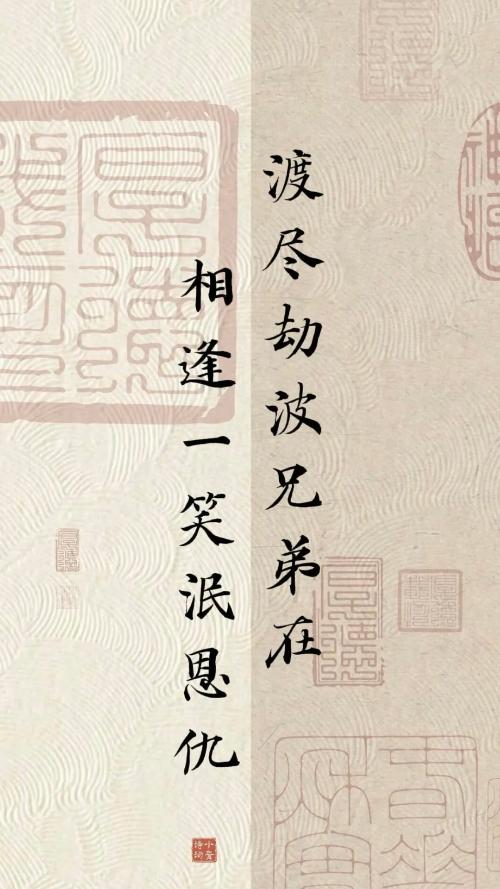 渡尽劫波兄弟在
相逢一笑泯恩仇